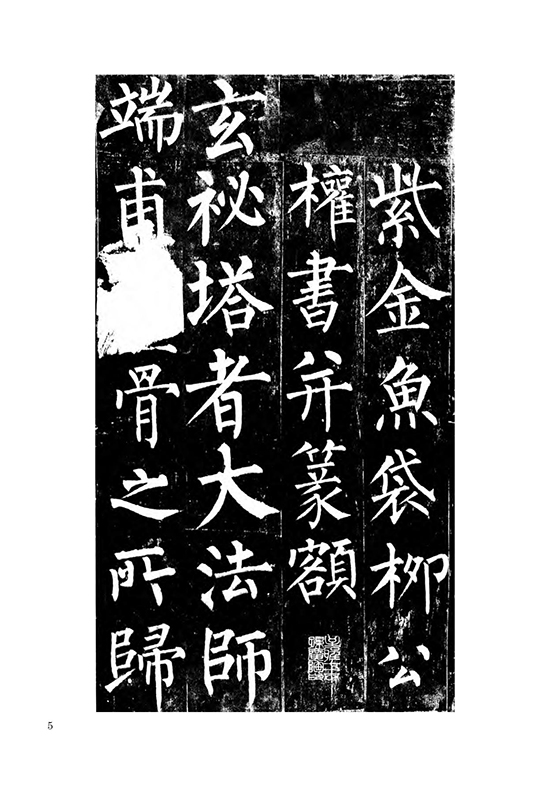 紫金魚袋柳公
權書并篆額
玄祕塔者大法師
端甫骨之所歸
5